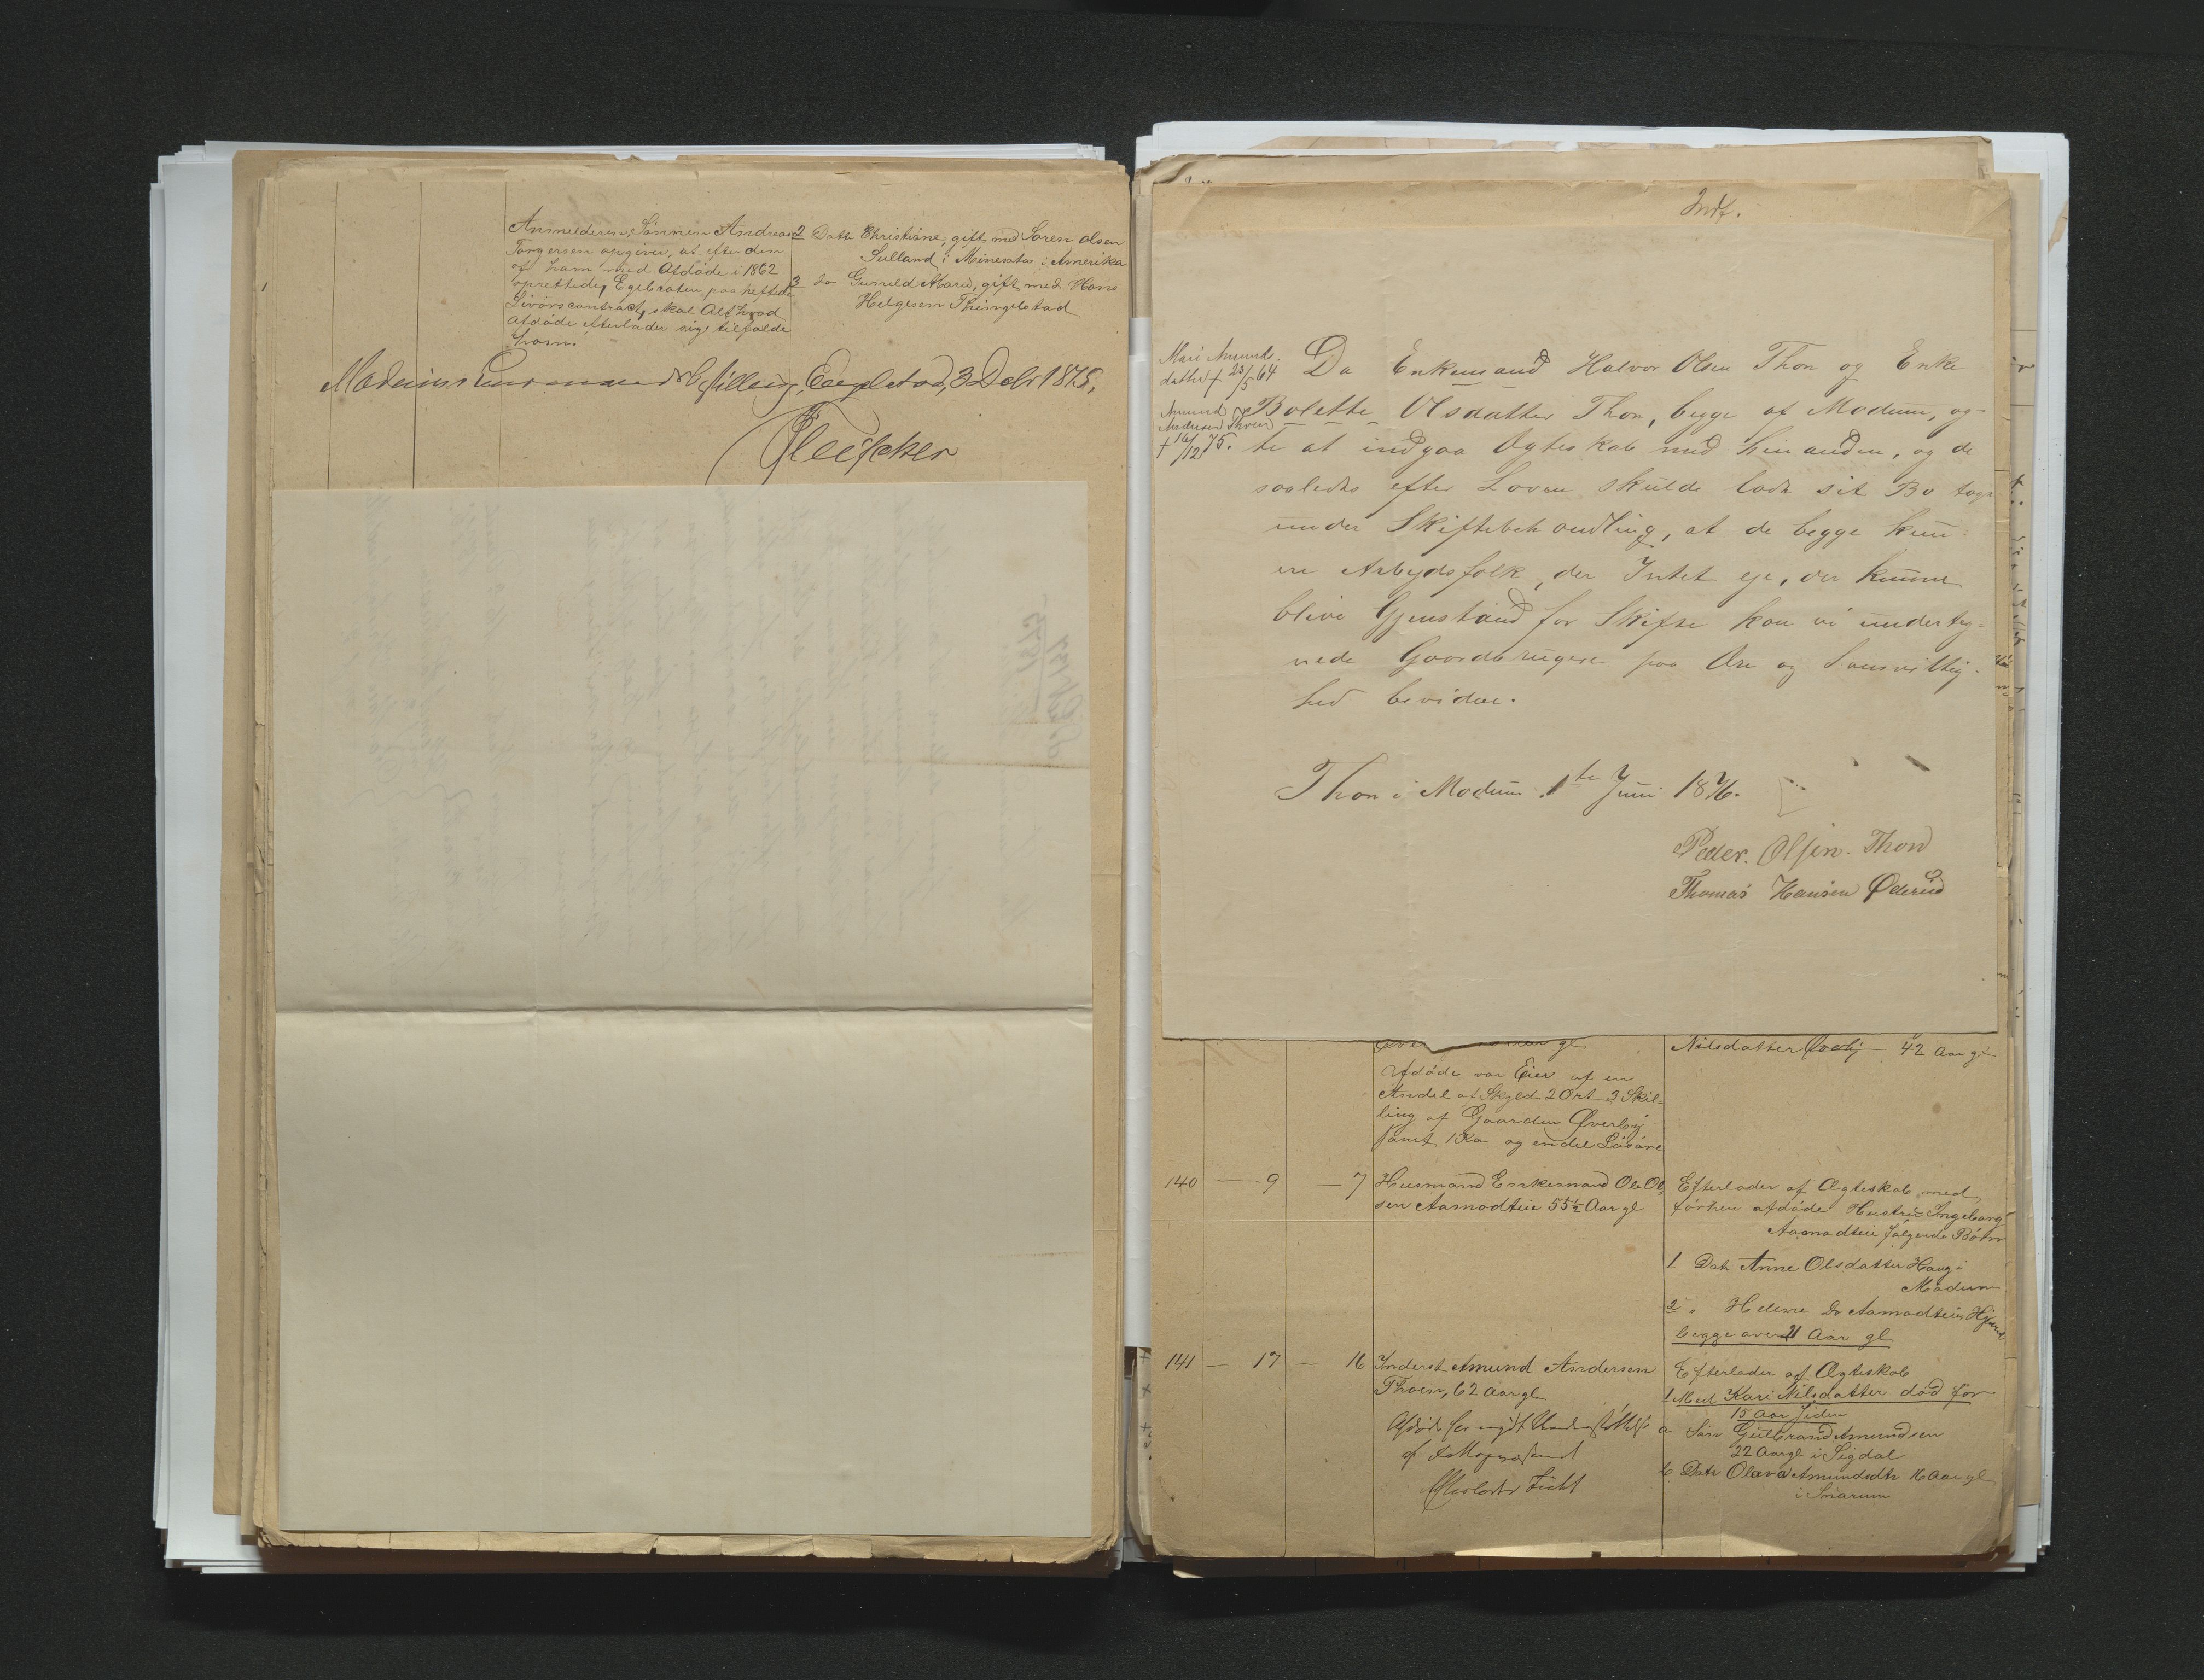 Anmelderen, Sønnen Andreas
Torgersen opgiver, at efter den
af ham med Afdøde i 1862
oprettede, Egebraten paaheftede
Livørscontract, skal Alt hvad
Afdøde efterlader sig tilfalde
ham.
2 Datt Christiane, gift med Søren Olsen
Sulland i Minesota i Amerika
3 do Gunild Marie, gift med Hans
Helgesen Thingelstad
Modums 3 Decbr 1875,
Indf.
Mari Amunds-
datter † 23/5 64
Amund
Andersen Thoen
† 16/12 75.
Da Enkemand Halvor Olsen Thon og Enke
Bolette Olsdatter Thon, begge af Modum, og-
te at indgaa Ægteskab med hinanden, og de
saaledes efter Loven skulde lade sit Bo tage
under Skiftebehandling, at de begge kun
ere Arbeydsfolk, der Intet eje, der kunne
blive Gjenstand for Skifte kan vi underteg-
nede Gaardbrugere paa Ære og Samvittig-
hed bevidne.
Thon i Modum 1te Juni 1876.
Peder. Olsen. Thon
Thomas Hansen Øderud
Nilsdatter Øverby 42 Aar gl
Afdøde var Eier af en
Andel af Skyld 2 Ort 3 Skil-
ling af Gaarden Øverby
samt 1 Ko og endel Løsøre
140 — 9 — 7 Husmand Enkemand Ole Ol-
sen Aamodteie 55½ Aar gl
Efterlader af Ægteskab med
førhen afdøde Hustru Ingeborg
Aamodteie følgende Børn
1 Datr Anne Olsdatter Haug i
Modum
2 " Helene Do Aamodteie
begge over 21 Aar gl
141 — 17 — 16 Inderst Amund Andersen
Thoen, 62 Aar gl
Efterlader af Ægteskab
1 Med Kari Nilsdatter død for
15 Aar siden
a Søn Gulbrand Amundsen
22 Aar gl i Sigdal
b Datr Olava Amundsdtr 16 Aar gl
i Snarum